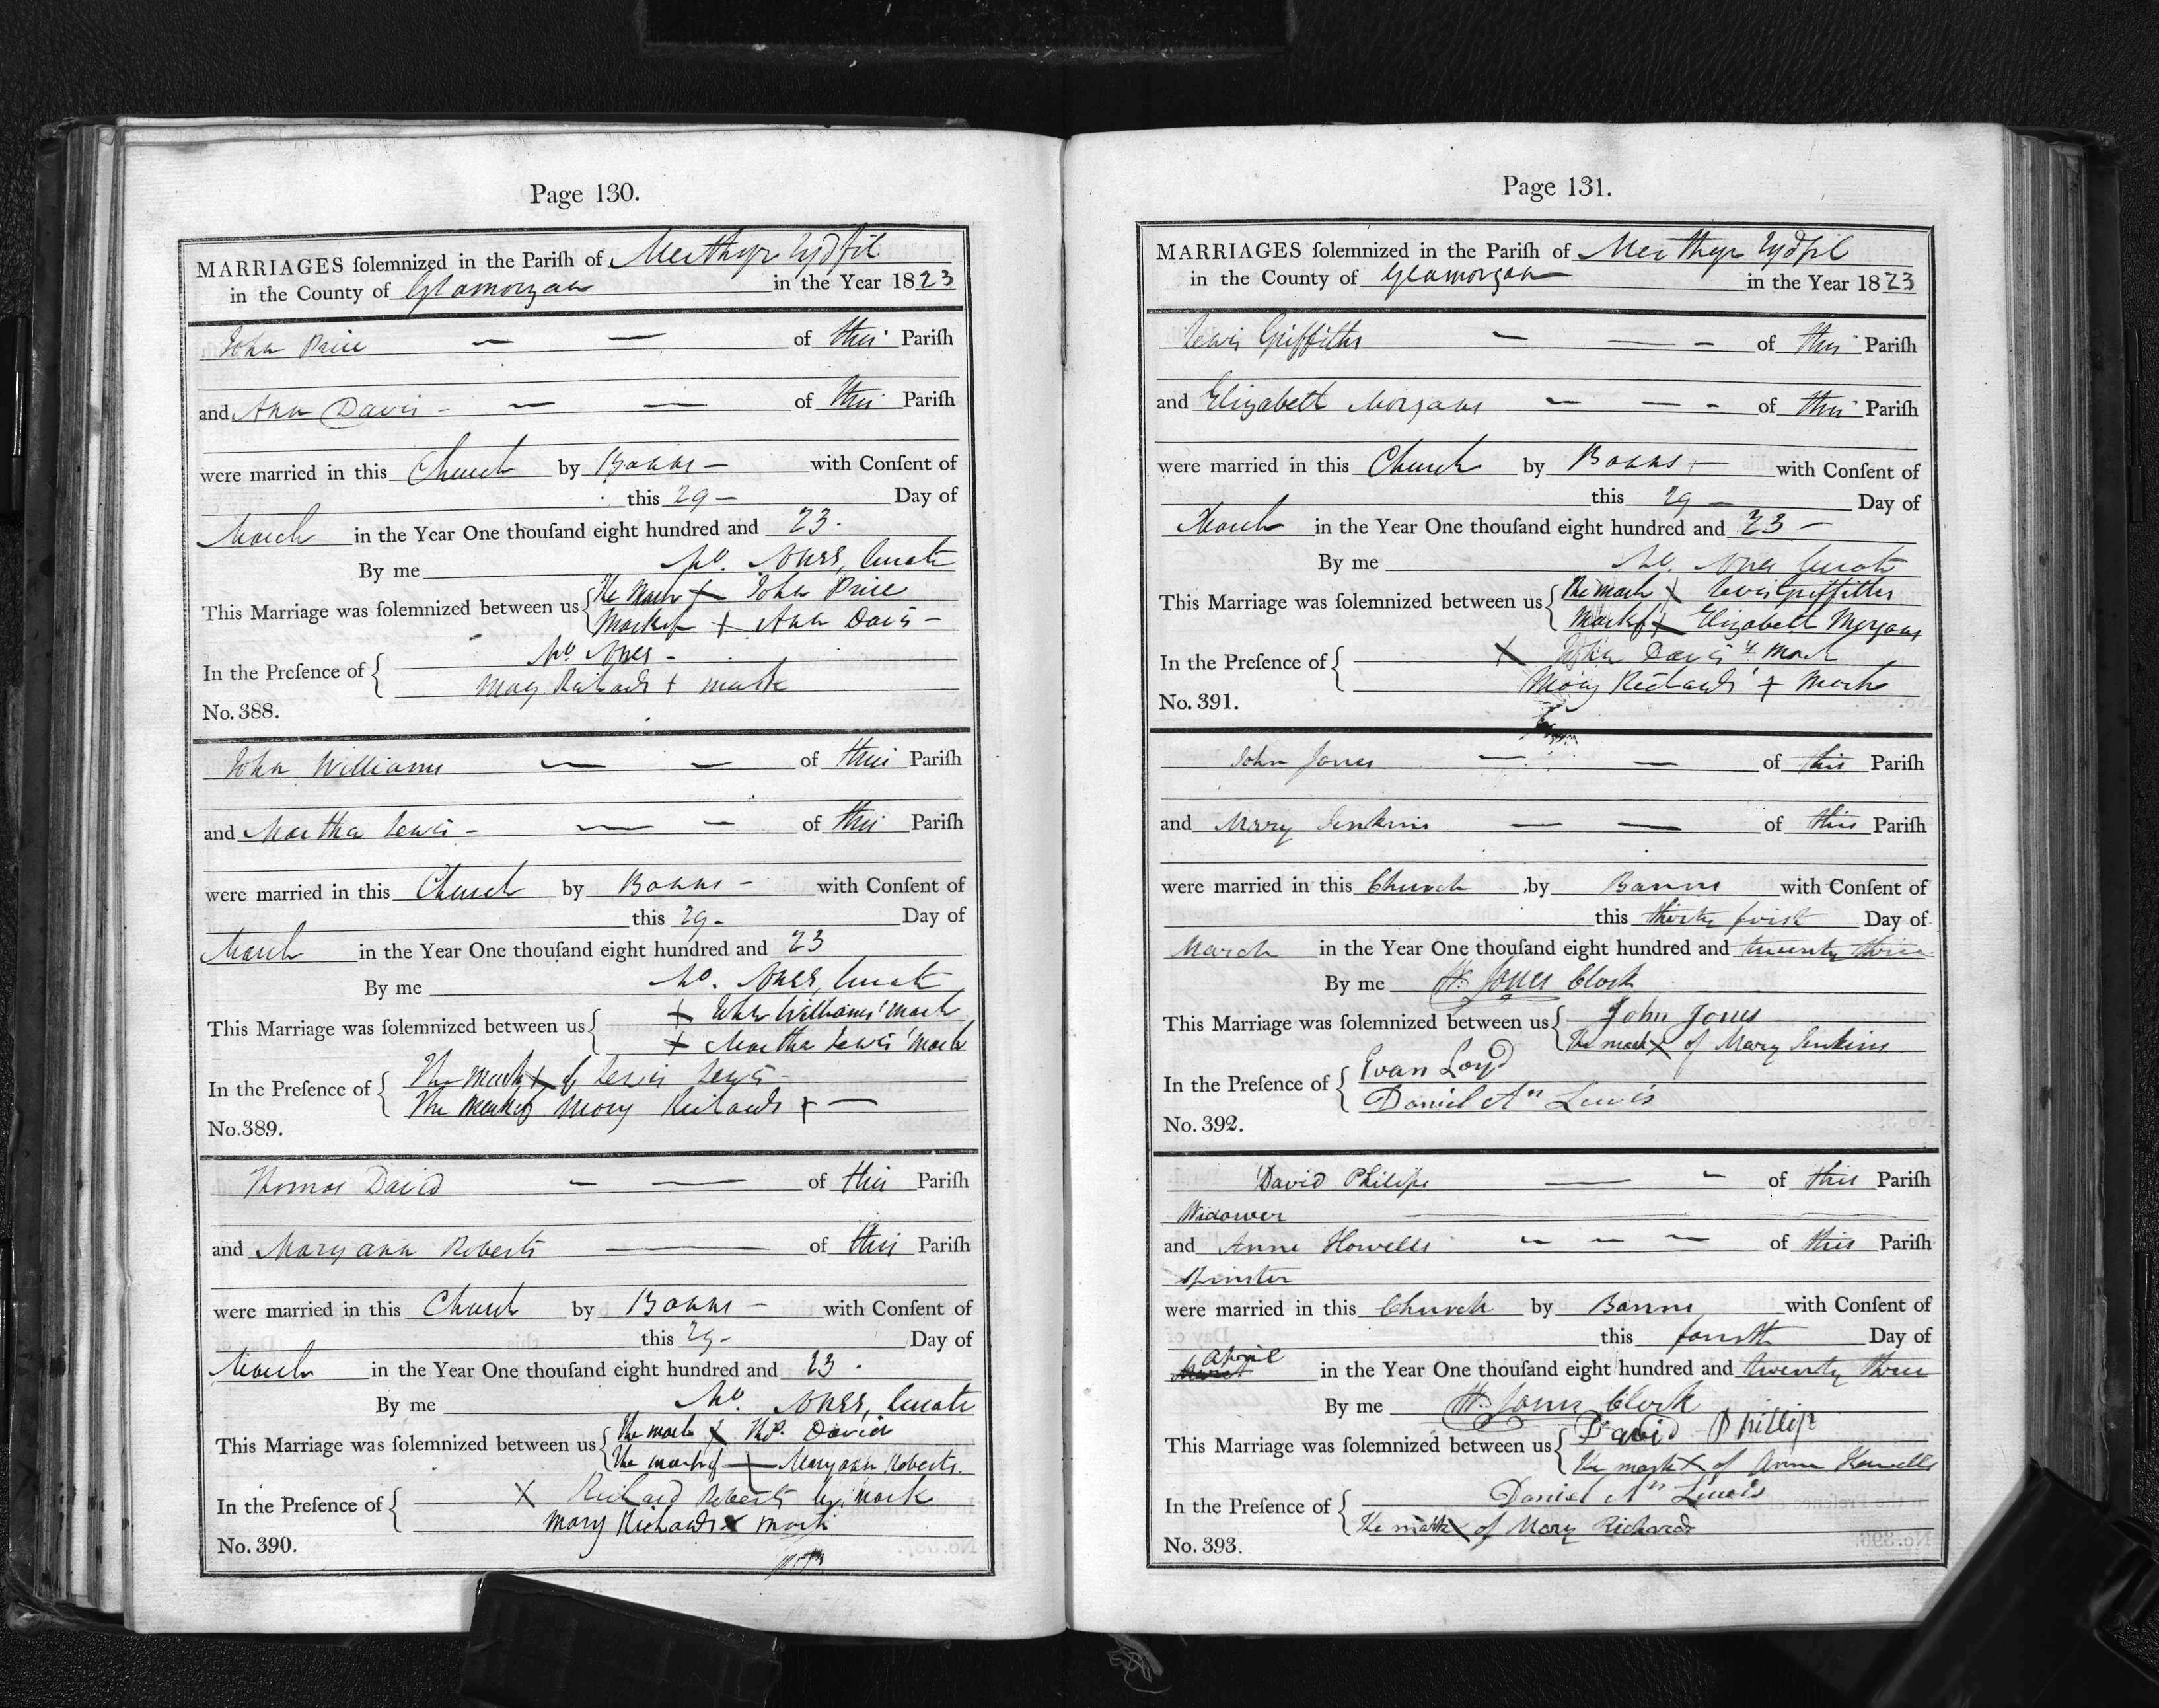 Page 130.
MARRIAGES ſolemnized in the Pariſh of Merthyr Tydfil
in the County of Glamorgan in the Year 1823
John Price — — of this Pariſh
and Ann Davis - — — of this Pariſh
were married in this Church by Banns — with Conſent of
this 29 — Day of
March in the Year One thouſand eight hundred and 23.
By me Wm. Jones, Curate
This Marriage was ſolemnized between us { The Mark + John Price
Mark of + Ann Davis -
In the Preſence of { Wm. Jones -
Mary Richards + mark
No. 388.
John Williams — — of this Pariſh
and Martha Lewis - — — of this Pariſh
were married in this Church by Banns - with Conſent of
this 29 - Day of
March in the Year One thouſand eight hundred and 23
By me Wm. Jones, Curate
This Marriage was ſolemnized between us { + John Williams' mark
+ Martha Lewis' Mark
In the Preſence of { The mark + of Lewis Lewis -
The Mark of Mary Richards + —
No. 389.
Thomas David — — of this Pariſh
and Maryann Roberts — of this Pariſh
were married in this Church by Banns — with Conſent of
this 29 - Day of
March in the Year One thouſand eight hundred and 23.
By me Wm. Jones, Curate
This Marriage was ſolemnized between us { The mark + Thos. David
The mark of + Maryann Roberts.
In the Preſence of { X Richard Roberts his mark
Mary Richards x mark
No. 390.
Page 131.
MARRIAGES ſolemnized in the Pariſh of Merthyr Tydfil
in the County of Glamorgan in the Year 1823
Lewis Griffiths — — - of this Pariſh
and Elizabeth Morgans — — - of this Pariſh
were married in this Church by Banns — with Conſent of
this 29 — Day of
March in the Year One thouſand eight hundred and 23 —
By me Wm. Jones Curate
This Marriage was ſolemnized between us { The mark X Lewis Griffiths
Mark of + Elizabeth Morgans
In the Preſence of { X John Davis's mark
Mary Richards' + Mark
No. 391.
John Jones — — of this Pariſh
and Mary Jenkins — — of this Pariſh
were married in this Church by Banns with Conſent of
this thirty first Day of
March in the Year One thouſand eight hundred and twenty three
By me H. Jones Clerk
This Marriage was ſolemnized between us { John Jones
The mark X of Mary Jenkins
In the Preſence of { Evan Loyd
Daniel An Lewis
No. 392.
David Philips — - of this Pariſh
Widower
and Anne Howells - - - of this Pariſh
Spinster
were married in this Church by Banns with Conſent of
this fourth Day of
April
March in the Year One thouſand eight hundred and twenty three
By me H. Jones Clerk
This Marriage was ſolemnized between us { David Phillip
The mark X of Anne Howells
In the Preſence of { Daniel An Lewis
The mark X of Mary Richards
No. 393.